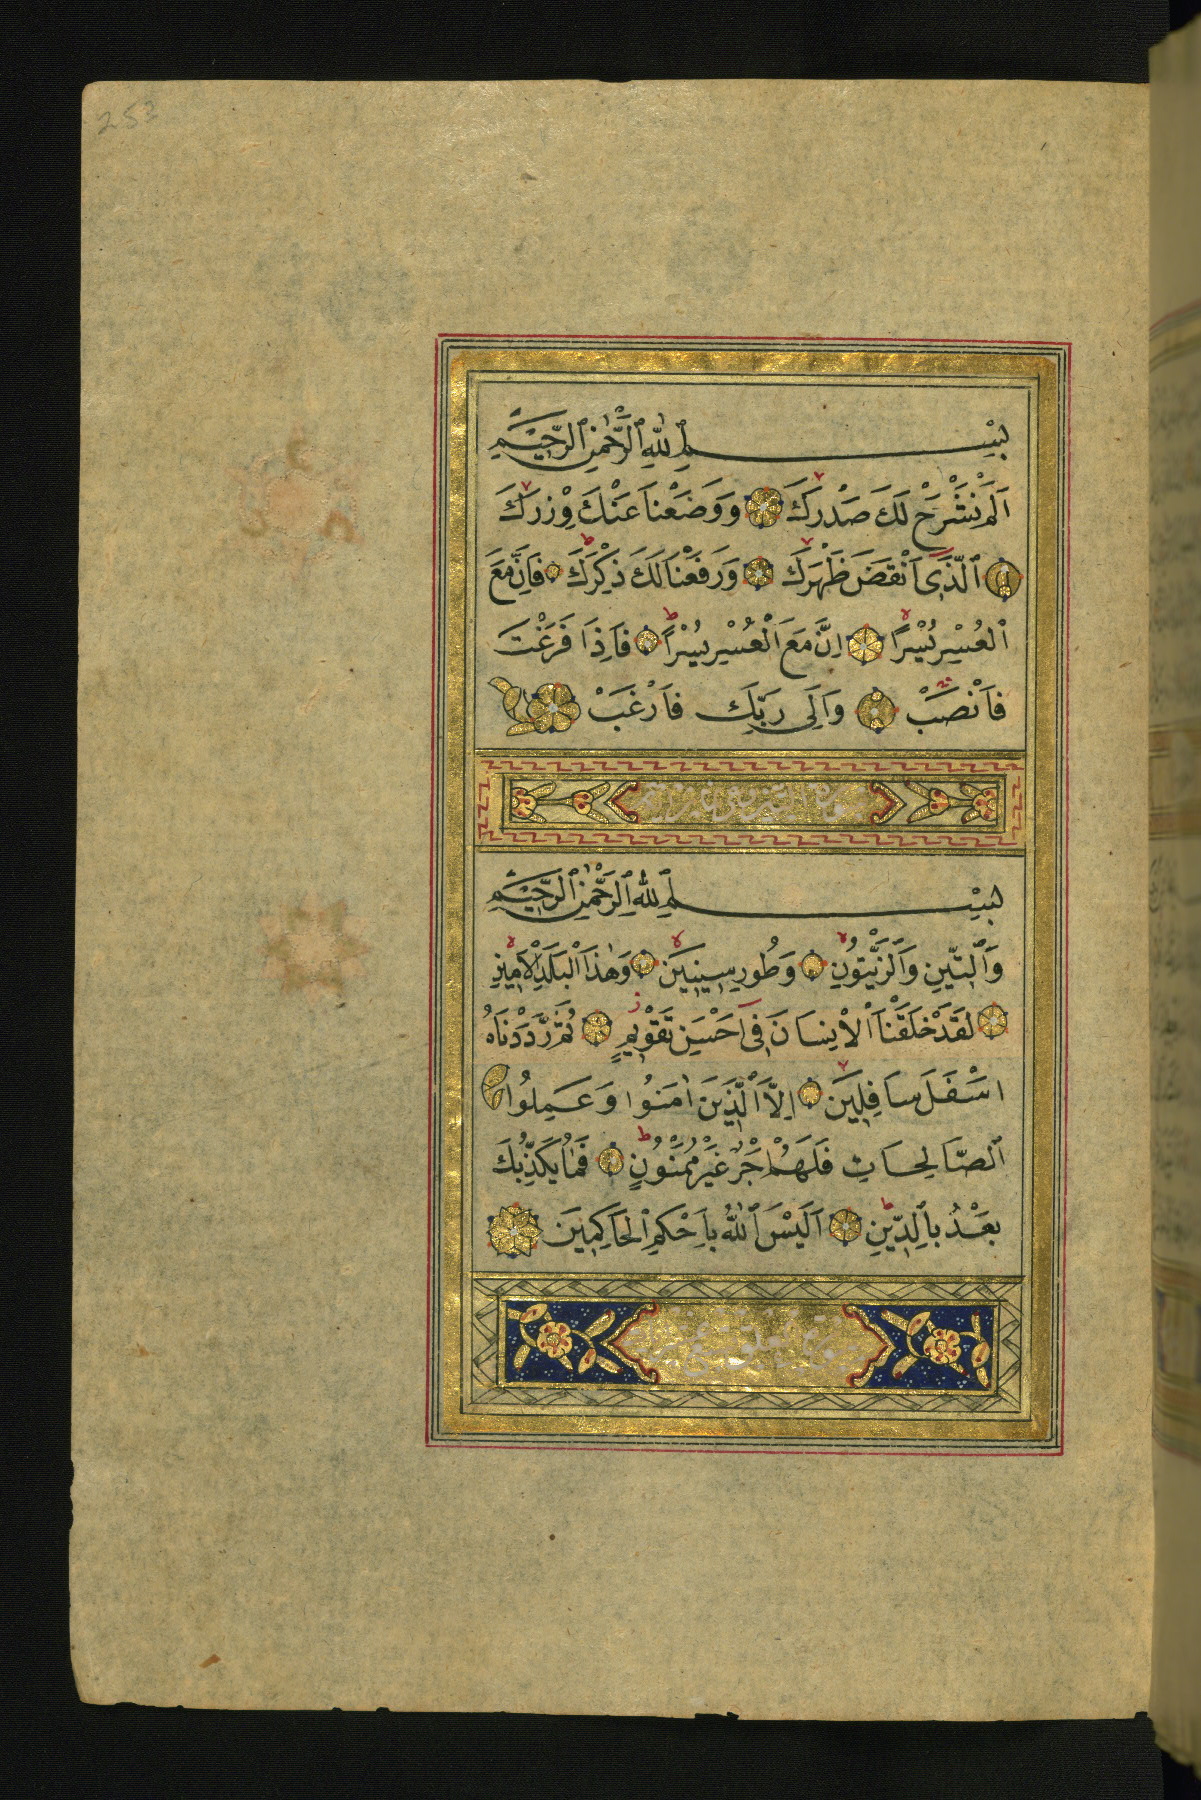 253
بِسْمِ اللّٰهِ الرَّحْمٰنِ الرَّحِيْمِ
اَلَمْ نَشْرَحْ لَكَ صَدْرَكَ وَوَضَعْنَا عَنْكَ وِزْرَكَ
اَلَّذٖى اَنْقَضَ ظَهْرَكَ وَرَفَعْنَا لَكَ ذِكْرَكَ فَاِنَّ مَعَ
الْعُسْرِ يُسْرًا اِنَّ مَعَ الْعُسْرِ يُسْرًا فَاِذَا فَرَغْتَ
فَانْصَبْ وَاِلٰى رَبِّكَ فَارْغَبْ
بِسْمِ اللّٰهِ الرَّحْمٰنِ الرَّحِيْمِ
وَالتّٖينِ وَالزَّيْتُونِ وَطُورِ سٖينٖينَ وَهٰذَا الْبَلَدِ الْاَمٖينِ
لَقَدْ خَلَقْنَا الْاِنْسَانَ فٖى اَحْسَنِ تَقْوٖيمٍ ثُمَّ رَدَدْنَاهُ
اَسْفَلَ سَافِلٖينَ اِلَّا الَّذٖينَ اٰمَنُوا وَعَمِلُوا
الصَّالِحَاتِ فَلَهُمْ اَجْرٌ غَيْرُ مَمْنُونٍ فَمَا يُكَذِّبُكَ
بَعْدُ بِالدّٖينِ اَلَيْسَ اللّٰهُ بِاَحْكَمِ الْحَاكِمٖينَ